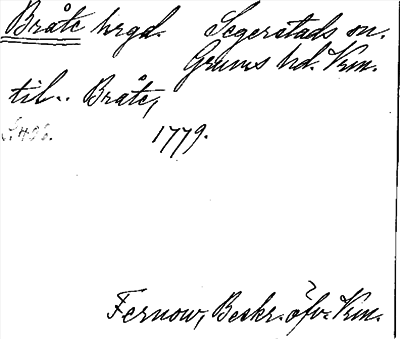 Bråte hrgd. Segerstads sn.
Grums hd. Vrm.
til.. Bråte,
S. 436. 1779.
Fernow, Beskr. öfv. Vrm.